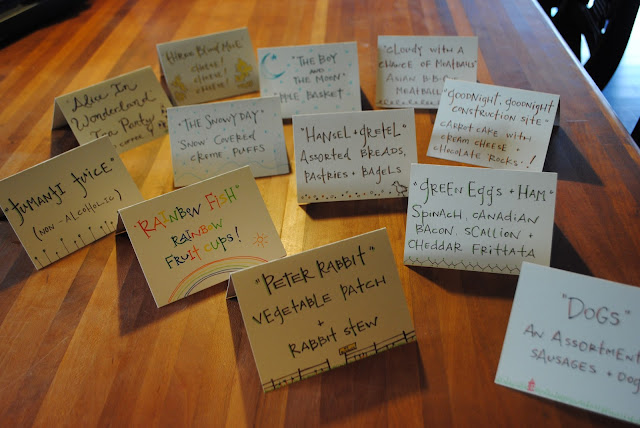 "Three Blind Mice"
Cheese!
Cheese!
Cheese!
"The Boy
and
The Moon"
Apple Basket
"Cloudy with a
chance of Meatballs"
Asian B.B.Q.
Meatballs
"Alice in
Wonderland
Tea Party"
"The Snowy Day"
Snow Covered
Creme Puffs
"Hansel + Gretel"
Assorted Breads,
Pastries + Bagels
"Goodnight, Goodnight
Construction Site"
Carrot Cake with
Cream Cheese +
Chocolate Rocks!
Jumanji Juice
(non-alcoholic)
"Rainbow Fish"
Rainbow
Fruit Cups!
"Green Eggs + Ham"
Spinach, Canadian
Bacon, Scallion +
Cheddar Frittata
"Peter Rabbit"
Vegetable Patch
+
Rabbit Stew
"Dogs"
An Assortment
Sausages + Dog